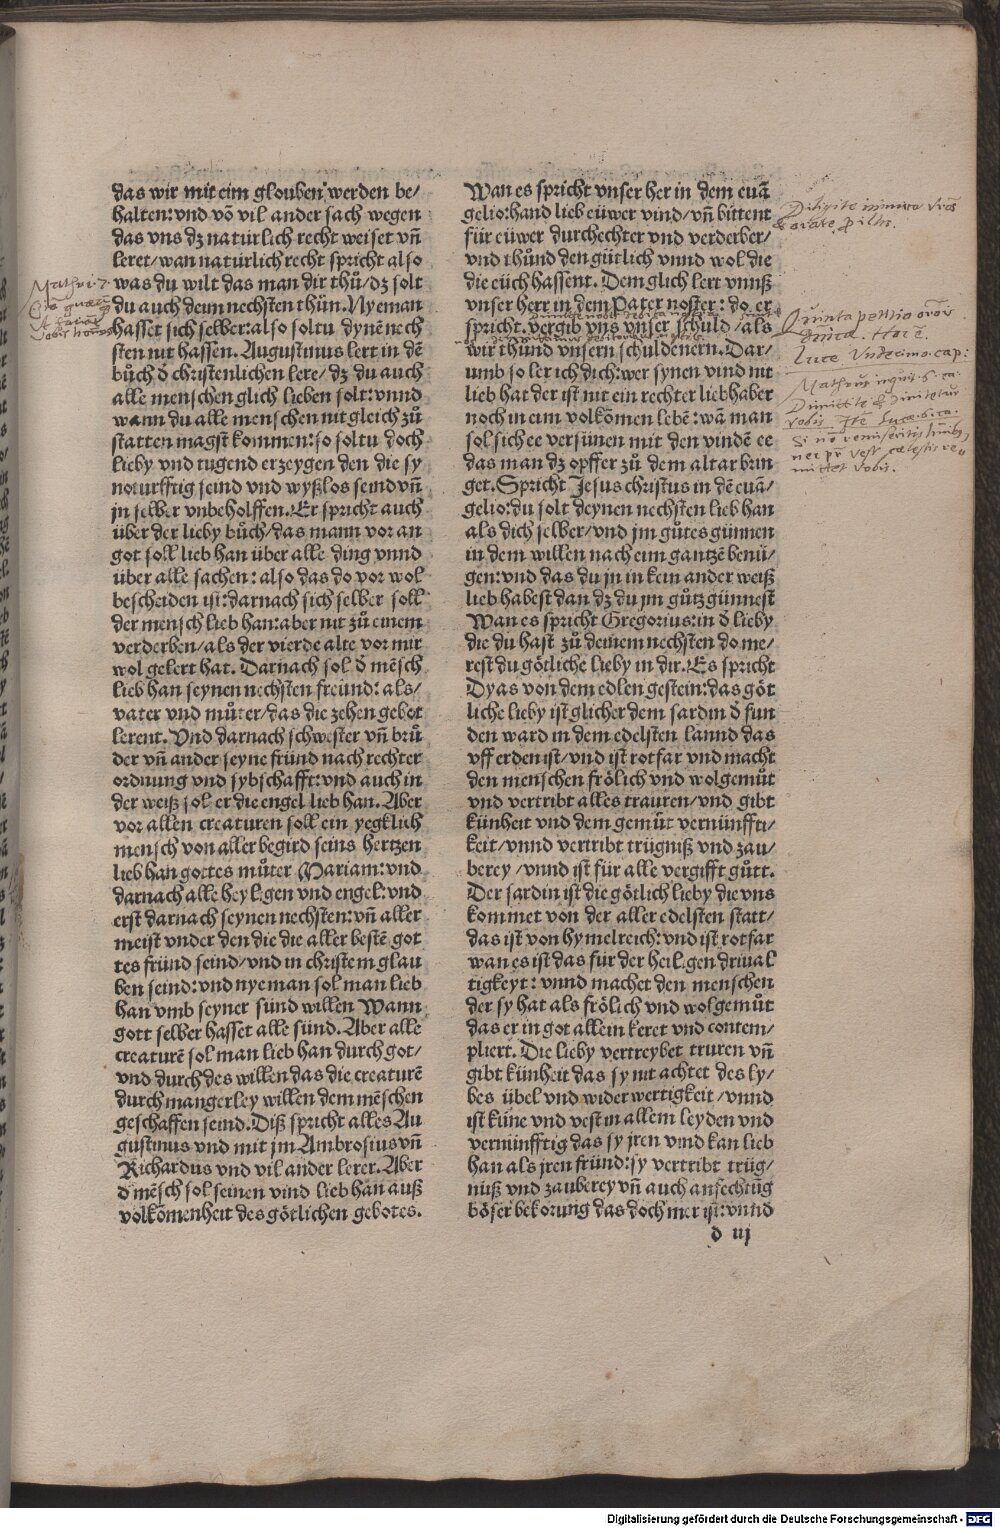 das wir mit eim glouben werden be/
halten: vnd võ vil ander sach wegen
das vns dz natürlich recht weiset vñ
leret/ wan natürlich recht spricht also
was du wilt das man dir thuͤ/ dz solt
du auch deim nechsten thün. Nyeman
hasset sich selber: also soltu dynẽ nech
sten nit hassen. Augustinus lert in dẽ
buͤch d christenlichen lere/ dz du auch
alle menschen glich lieben solt: vnnd
wann du alle menschen nit gleich zuͦ
statten magst kommen: so soltu doch
lieby vnd tugend erzeygen den die sy
noturfftig seind vnd wyßlos seind vñ
jn selber vnbeholffen. Er spricht auch
über der lieby buͦch/ das mann vor an
got soll lieb han über alle ding vnnd
über alle sachen: also das do vor wol
bescheiden ist: darnach sich selber soll
der mensch lieb han: aber nit zuͦ einem
verderben/ als der vierde alte vor mir
wol gelert hat. Darnach sol d mẽsch
lieb han seynen nechsten freünd: als/
vater vnd muͦter/ das die zehen gebot
lerent. Vnd darnach schwester vñ bruͦ
der vñ ander seyne fründ nach rechter
ordnung vnd sybschafft: vnd auch in
der weiß sol er die engel lieb han. Aber
vor allen creaturen soll ein yegklich
mensch von aller begird seins hertzen
lieb han gottes muͦter Mariam: vnd
darnach alle heyligen vnd engel: vnd
erst darnach seynen nechsten: vñ aller
meist vnder den die die aller bestẽ got
tes fründ seind/ vnd in christem glau
ben seind: vnd nyeman sol man lieb
han vmb seyner sünd willen Wann
gott selber hasset alle sünd. Aber alle
creaturẽ sol man lieb han durch got/
vnd durch des willen das die creaturẽ
durch mangerley willen dem mẽschen
geschaffen seind. Diß spricht alles Au
gustinus vnd mit jm Ambrosius vñ
Richardus vnd vil ander lerer. Aber
d mẽsch sol seinen vind lieb han auß
volkõmenheit des götlichen gebotes.
Wan es spricht vnser her in dem euã
gelio: hand lieb eüwer vind/ vñ bittent
für eüwer durchechter vnd verderber/
vnd thuͦnd den gütlich vnnd wol die
die eüch hassent. Dem glich lert vnnß
vnser herr in dem Pater noster: do er
spricht. vergib vns vnser schuld/ als
wir thuͦnd vnsern schuldenern. Dar/
umb so ler ich dich: wer synen vind nit
lieb hat der ist nit ein rechter liebhaber
noch in eim volkõmen lebẽ: wã man
sol sich ee versünen mit den vindẽ ee
das man dz opffer zuͦ dem altar brin
get. Spricht Jesus christus in dẽ euã/
gelio: du solt deynen nechsten lieb han
als dich selber/ vnd jm guͦtes günnen
in dem willen nach eim gantzẽ benü/
gen: vnd das du jn in kein ander weiß
lieb habest dan dz du jm guͦtz günnest
Wan es spricht Gregorius: in d lieby
die du hast zuͦ deinem nechsten do me/
rest du götliche lieby in dir. Es spricht
Dyas von dem edlen gestein: das göt
liche lieby ist glicher dem sardin d fun
den ward in dem edelsten lannd das
vff erden ist/ vnd ist rotfar vnd macht
den menschen frölich vnd wolgemuͦt
vnd vertribt alles trauren/ vnd gibt
künheit vnd dem gemuͦt vernünffti/
keit/ vnnd vertribt trügniß vnd zau/
berey/ vnnd ist für alle vergifft guͦtt.
Der sardin ist die götlich lieby die vns
kommet von der aller edelsten statt/
das ist von hymelreich: vnd ist rotfar
wan es ist das für der heiligen driual
tigkeyt: vnnd machet den menschen
der sy hat als frölich vnd wolgemuͦt
das er in got allein keret vnd contem/
pliert. Die lieby vertreybet truren vñ
gibt künheit das sy nit achtet des ly/
bes übel vnd widerwertigkeit/ vnnd
ist küne vnd vest in allem leyden vnd
vernünfftig das sy jren vind kan lieb
han als jren fründ: sy vertribt trüg/
nuß vnd zauberey vñ auch anfechtũg
böser bekorung das doch mer ist: vnnd
d iij
Mathei 7
Diligite inimicos vr̃os
& orate
Quinta petitio
Luce Vndecimo cap:
Matheus
Dimittite & dimittetur
vobis
mittet vobis.
Digitalisierung gefördert durch die Deutsche Forschungsgemeinschaft - DFG